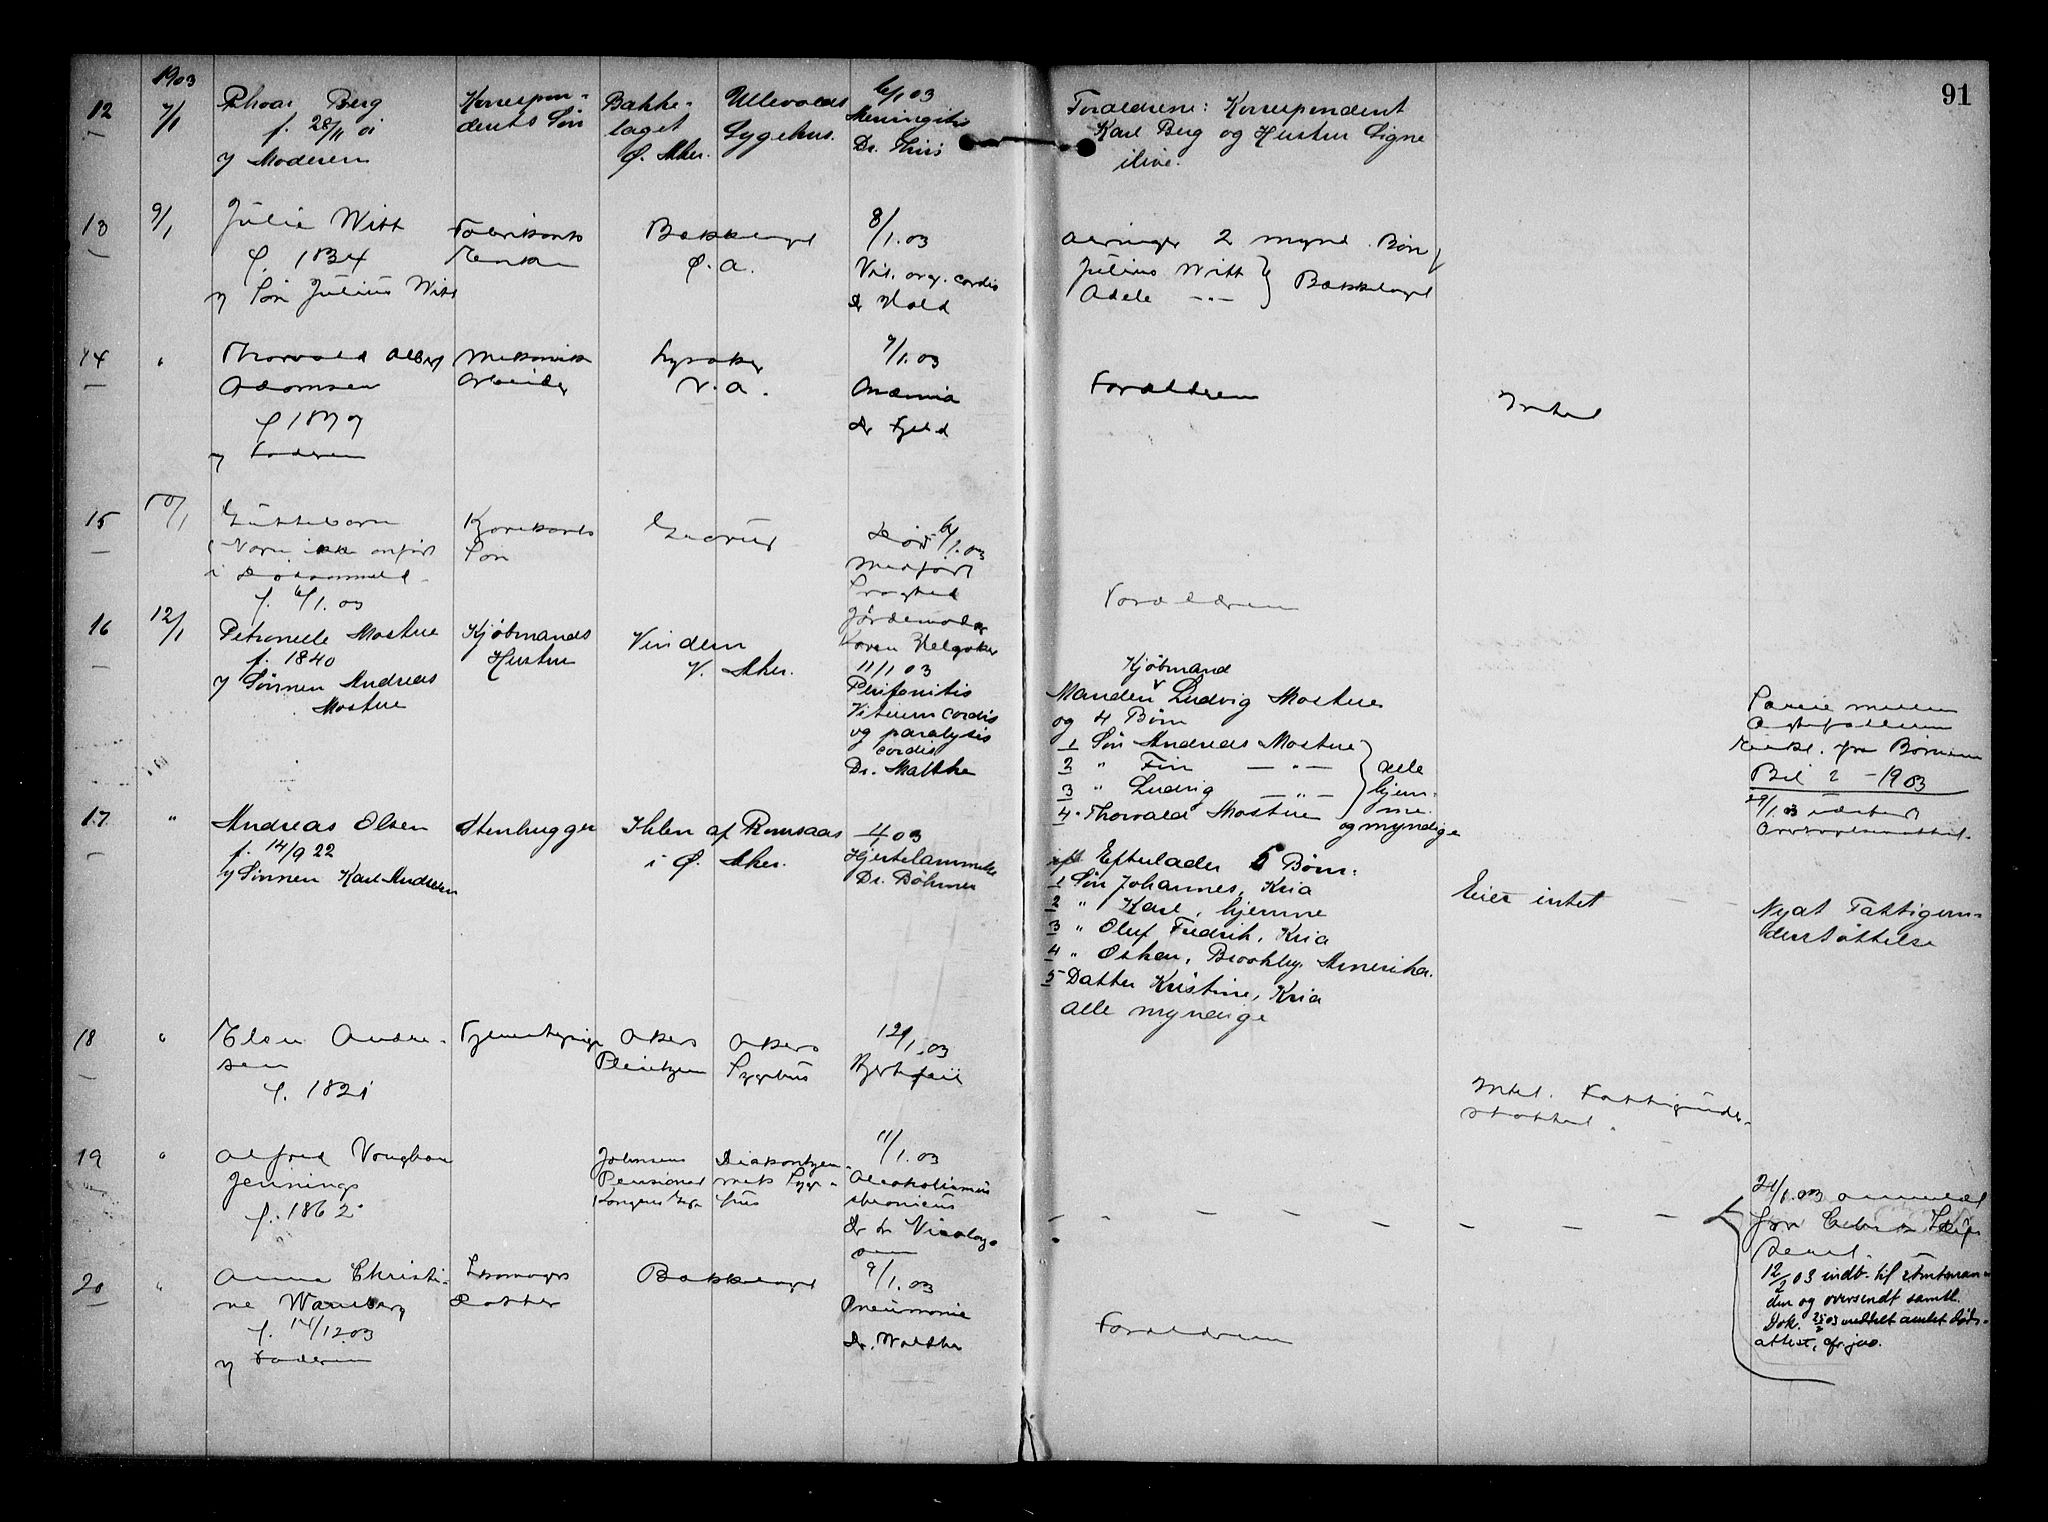 91
1903
12
7/1
Berg
f. 28/11 01
Moderen
Korrespon-
dents Søn
Bakke-
laget
Ø. Aker.
Ullevolds
Sygehus.
6/1 03
Meningitis
Dr. Thiis
Forældrene: Korrespondent
Karl Berg og Hustru Signe
ilive.
13
9/1
Julie Witt
f. 1834
Søn Julius Witt
Fabrikants
Enke
Bækkelaget
Ø. A.
8/1.03
Vit. org. cordis
Dr Hald
2 mynd. Børn
Julius Witt
Adele -"-
Bækkelaget
14
"
Thorvald Albert
Adamsen
f 1879
Faderen
Mekanisk
Arbeider
Lysaker
V. A.
7/1.03
Anæmia
Dr Fjeld
Forældrene
Intet
15
10/1
Guttebarn
Navn ikke anført
i Dødsanmeld.
f. 6/1.03
Søn
Grorud
Død 6/1.03
Medfødt
Svaghed
Jordemoder
Karen
Forældrene
16
12/1
Petronelle Mostue
f. 1840
Sønnen Andreas
Mostue
Kjøbmands
Hustru
Vindern
V. Aker.
11/1 03
Peritonitis
Vitium cordis
og paralysis
cordis
Dr. Malthe
Kjøbmand
Manden Ludvig Mostue
og 4 Børn
1 Søn Andreas Mostue
2 " Fin -"-
3 " Ludvig -"-
4 " Thorvald Mostue
alle
hjem-
me
og myndige
fra Børnene
Bil 2 - 1903
29/1.03
17.
"
Andreas Olsen
f. 14/9 22
Sønnen Karl Andersen
Stenhugger
af Romsaas
i Ø. Aker.
4 03
Hjertelammelse
Dr. Böhmer
Efterlader 5 Børn:
1 Søn Johannes, Kria
2 " Karl, hjemme
3 " Oluf Fredrik, Kria
4 " Oskar, Brooklyn Amerika.
5 Datter Kristine, Kria
alle myndige
Eier intet
Nydt Fattigun-
derstøttelse
18
"
Elen Andre-
sen
f. 1821
Tjenestepige
Akers
Pleiehjem
Akers
Sygehus
12/1.03
Hjertefeil
Intet. Fattigunder-
støttet.
19
"
Alfred Vaughan
Jennings
f. 1862
Johnsens
Pensionat
Kongens
Diakonhjem-
mets Syge-
hus
11/1.03
Alcoholismus
chronicus
Dr
21/1.03 anmeldt
12/2 03 indb. til Amtman-
den og oversendt samtl.
Dok. 25/2 03 meddelt amtet Døds-
attest,
20
"
Anna Christi-
ne
f. 14/12.03
Faderen
Datter
Bækkelaget
9/1.03
Pneumonie
Dr. Malthe
Forældrene